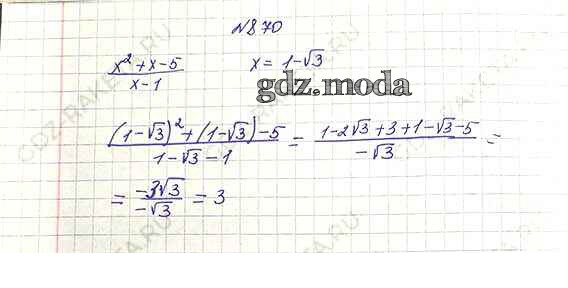 N870
x² + x - 5 / x - 1    x = 1 - √3
gdz.moda
(1 - √3)² + (1 - √3) - 5 / 1 - √3 - 1 = 1 - 2√3 + 3 + 1 - √3 - 5 / -√3 =
= -3√3 / -√3 = 3
GDZ-RAKETA.RU